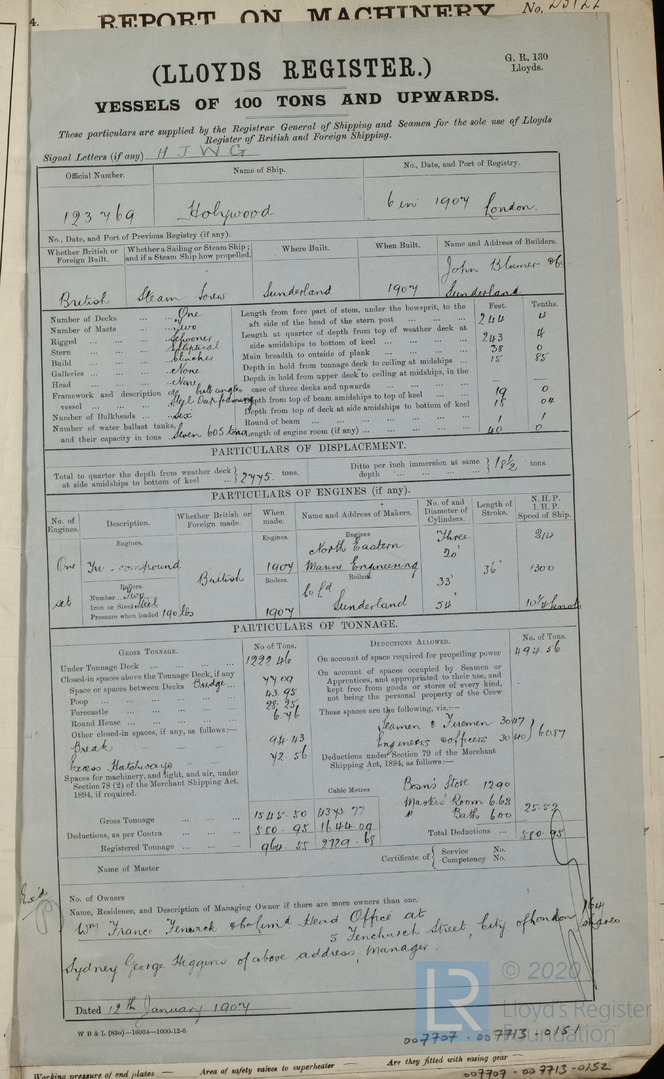 4.
REPORT ON MACHINERY No. 23122
(LLOYDS REGISTER.)
G. R. 130
Lloyds.
VESSELS OF 100 TONS AND UPWARDS.
These particulars are supplied by the Registrar General of Shipping and Seamen for the sole use of Lloyds
Register of British and Foreign Shipping.
Signal Letters (if any) H J W G
Official Number. Name of Ship. No., Date, and Port of Registry.
123769 Holywood 6 in 1907 London
No., Date, and Port of Previous Registry (if any).
Whether British or Foreign Built. Whether a Sailing or Steam Ship; and if a Steam Ship how propelled. Where Built. When Built. Name and Address of Builders.
British Steam Screw Sunderland 1907 John Blumer & Co Sunderland
Number of Decks ... ... One
Number of Masts ... ... Two
Rigged ... ... Schooner
Stern ... ... Elliptical
Build ... ... Clincher
Galleries ... ... None
Head ... ... None
Framework and description of vessel ... ... Steel Deep framing bulb angles
Number of Bulkheads ... Six
Number of water ballast tanks, and their capacity in tons Seven 605 tons
Feet. Tenths.
Length from fore part of stem, under the bowsprit, to the aft side of the head of the stern post ... 244 4
Length at quarter of depth from top of weather deck at side amidships to bottom of keel ... 243 4
Main breadth to outside of plank ... 38 0
Depth in hold from tonnage deck to ceiling at midships ... 15 85
Depth in hold from upper deck to ceiling at midships, in the case of three decks and upwards ...
Depth from top of beam amidships to top of keel ... 19 0
Depth from top of deck at side amidships to bottom of keel 18 04
Round of beam ... 1 1
Length of engine room (if any) ... 40 0
PARTICULARS OF DISPLACEMENT.
Total to quarter the depth from weather deck at side amidships to bottom of keel ... 2775. tons. Ditto per inch immersion at same depth ... 18½ tons
PARTICULARS OF ENGINES (if any).
No. of Engines. Description. Whether British or Foreign made. When made. Name and Address of Makers. No. of and Diameter of Cylinders. Length of Stroke. N. H. P. I. H. P. Speed of Ship.
Engines. Engines. Engines
One set Tri-compound British 1907 North Eastern Marine Engineering Co Ld Sunderland Three 20" 33" 54" 36" 214 1300 10¼ knots
Boilers. Boilers. Boilers.
Number Two
Iron or Steel Steel
Pressure when loaded 190 lbs 1907
PARTICULARS OF TONNAGE.
GROSS TONNAGE. No of Tons.
Under Tonnage Deck ... 1222.46
Closed-in spaces above the Tonnage Deck, if any
Space or spaces between Decks Bridge ... 77.09
Poop ... 43.95
Forecastle ... 28.25
Round House ... 6.76
Other closed-in spaces, if any, as follows:—
Break 94.43
Excess Hatchways 72.56
Spaces for machinery, and light, and air, under Section 78 (2) of the Merchant Shipping Act, 1894, if required.
Cubic Metres
Gross Tonnage ... 1545.50 4373.77
Deductions, as per Contra ... 580.95 1644.09
Registered Tonnage ... 964.55 2729.68
DEDUCTIONS ALLOWED. No. of Tons.
On account of space required for propelling power 494.56
On account of spaces occupied by Seamen or Apprentices, and appropriated to their use, and kept free from goods or stores of every kind, not being the personal property of the Crew
These spaces are the following, viz.:—
Seamen & Firemen 30.47
Engineers & officers 30.40 } 60.87
Deductions under Section 79 of the Merchant Shipping Act, 1894, as follows:—
Bosn's Store 12.90
Master's Room 6.62
" Bath 6.00 25.52
Total Deductions ... 580.95
Name of Master Certificate of { Service No. Competency No.
No. of Owners
Name, Residence, and Description of Managing Owner if there are more owners than one.
Wm France Fenwick & Co Limd Head Office at
5 Fenchurch Street, City of London 64 shares
Sydney George Higgins of above address, Manager
Dated 12th January 1907
W B & L (83o)—16034—1000-12-6
LR © 2020
Lloyd's Register
Foundation
007707-007713-0151
Working pressure of end plates — Area of safety valves to superheater — Are they fitted with easing gear —
007707-007713-0152